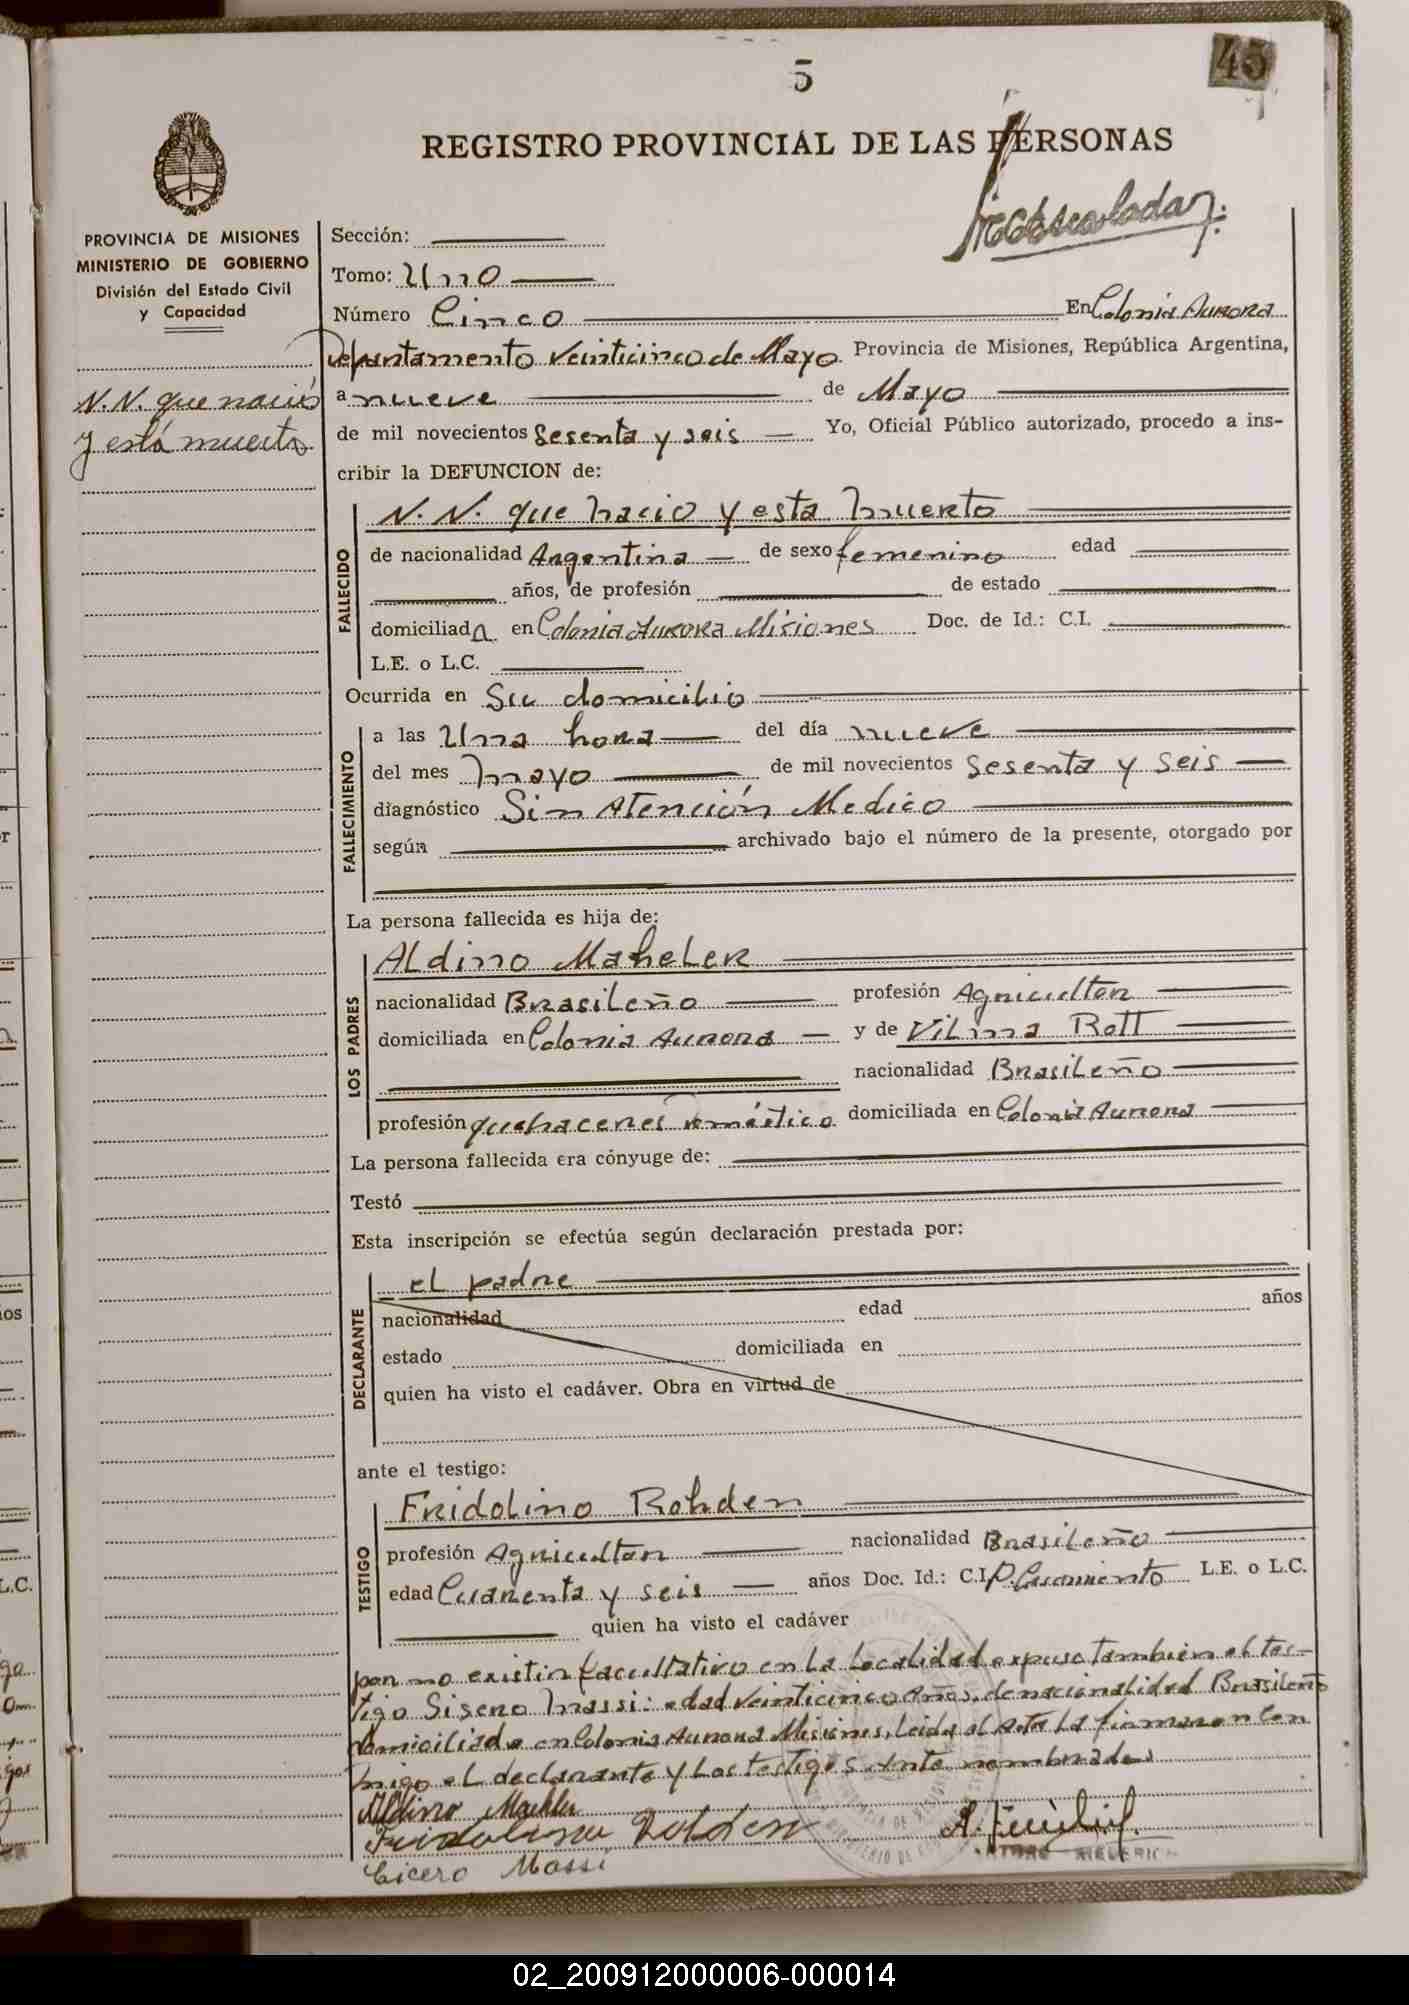 5
45
REGISTRO PROVINCIAL DE LAS PERSONAS
PROVINCIA DE MISIONES
MINISTERIO DE GOBIERNO
División del Estado Civil
y Capacidad
N.N. que nació
y está muerto
Sección:
Tomo: Uno
Número Cinco En Colonia Aurora
Departamento Veinticinco de Mayo Provincia de Misiones, República Argentina,
a nueve de Mayo
de mil novecientos Sesenta y seis Yo, Oficial Público autorizado, procedo a ins-
cribir la DEFUNCION de:
FALLECIDO
N. N. que nacio y esta muerto
de nacionalidad Argentina de sexo femenino edad
años, de profesión de estado
domiciliada en Colonia Aurora Misiones Doc. de Id.: C.I.
L.E. o L.C.
Ocurrida en Su domicilio
FALLECIMIENTO
a las Una hora del día nueve
del mes mayo de mil novecientos Sesenta y Seis
diagnóstico Sin Atención Medico
según archivado bajo el número de la presente, otorgado por
La persona fallecida es hija de:
LOS PADRES
Aldino Maheler
nacionalidad Brasileño profesión Agricultor
domiciliada en Colonia Aurora y de Vilma Rott
nacionalidad Brasileño
profesión quehaceres doméstico domiciliada en Colonia Aurora
La persona fallecida era cónyuge de:
Testó
Esta inscripción se efectúa según declaración prestada por:
DECLARANTE
el padre
nacionalidad edad años
estado domiciliada en
quien ha visto el cadáver. Obra en virtud de
ante el testigo:
TESTIGO
Fridolino Rohden
profesión Agricultor nacionalidad Brasileño
edad Cuarenta y seis años Doc. Id.: C.I. L.E. o L.C.
quien ha visto el cadáver
por no existir facultativo en la Localidad expuso también el tes-
tigo Sisero Massi: edad Veinticinco Años, de nacionalidad Brasileño
domiciliado en Colonia Aurora Misiones, Leida al Acta La firmaron Con
migo el declarante y Los testigos Ante nombrados
Aldino Maehler
Fridolino Rohden
Cicero Massi
02_200912000006-000014